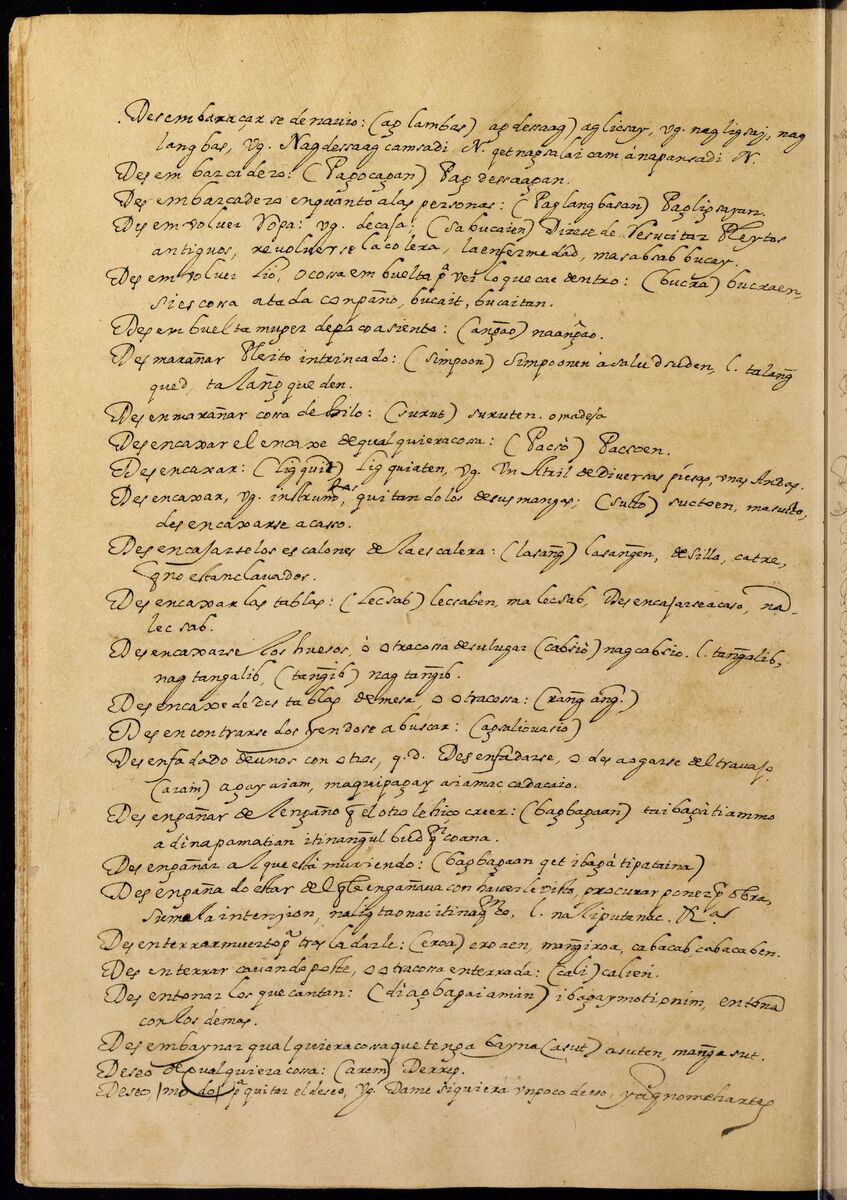 Desembaraçar se de navio: (ag lambas) ag dessaag) aglicsay, vg. nagligsaj, nag
langbas, vg. Nagdessaag camsadi N. qet nagsalai cam ánapansadi N.
Desembarcadero: (Pagocagan) Pag dessaagan.
Desembarcadera enquanto alas personas: (Paglangbasan) Pagligsayan.
Desemvolver Ropa: vg. decaja: (sabucaien) Dizese de Resucitar Pleytos
antiguos, revolverse la colera, la enfermedad, masabsab bucay.
Desemvolver lio, o cossa embuelta p.ª ver lo que cae dentro: (bucra) bucraen,
si es cossa atada con paño, bucait, bucaitan.
Desembuelta muger de poco asiento: (angao) naangao.
Desmarañar Pleito intrincado: (simpoon) simpoonen ásaludsuden, l. talang̃
qued, talang̃queden.
Desenmarañar cossa de hilo: (surut) suruten. o madeja
Desencaxar el encaxe de qualquiera cossa: (Pacsò) Pacsoen.
Desencaxar: (ligquit) ligquiaten, vg. Un Atril de Diversas piesas, unas Andas.
Desencaxar, vg. instrum.tos, quitandolos de sus mangas: (sulto) suctoen, masulto,
desencaxarse acasso.
Desencajarse los escalones de la escalera: (lasang̃) lasang̃en, de silla, catre,
q̃ no estan clavados.
Desencaxar las tablas: (lecsab) lecsaben, malecsab, Desencajarse acaso, na-
lecsab.
Desencaxarse los huesos, ò otra cossa de su lugar (cabsiò) nagcabsio. l. tang̃alib,
nagtangalib, (tang̃ib) nag tang̃ib.
Desencaxe de las tablas de mesa, o otra cossa: (rang̃ ang̃.)
Desencontrarse dos yendose a buscar: (agsaliouasio)
Desenfadado de unos con otros, q.d. Desenfadarse, o desaogarse del travajo.
(araim) agayaiam, maquipagay aiamac cadacaio.
Desengañar de l engaño q̃ el otro le hiço creer: (bagbagaan) taibagàtiammo
adinapamatian itinang̃ul bued q̃ coana.
Desengañar al que està muriendo: (bagbagaan qet ibagàtipataina)
Desengañado estar del q̃ le engañava con haverle visto, procurar poner p.r obra,
su mala intension, naligtaonac itinaq̃to, l. naliputanac. &.ª
Desenterrar muerto p.ª trasladarle: (eroa) eroaen, mang̃iroa, cabacab cabacaben.
Desenterrar cavando poste, o otra cossa enterrada: (cali) calien.
Desentonar los que cantan: (diagbagaiaman) ibagaymotipnim, entona
con los demas.
Desembaynar qualquiera cossa que tenga bayna (asut) asuten, mang̃asut.
Deseo de qualquiera cossa: (arem) Derrep.
Deseo, modo p.ª quitar el deseo, vg. Dame siquiera un poco de eso,